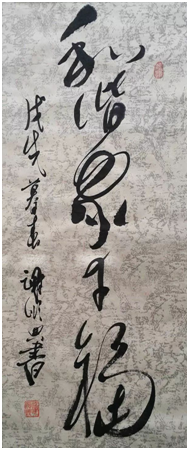 和谐家幸福
戊戌 暮春 谢 书